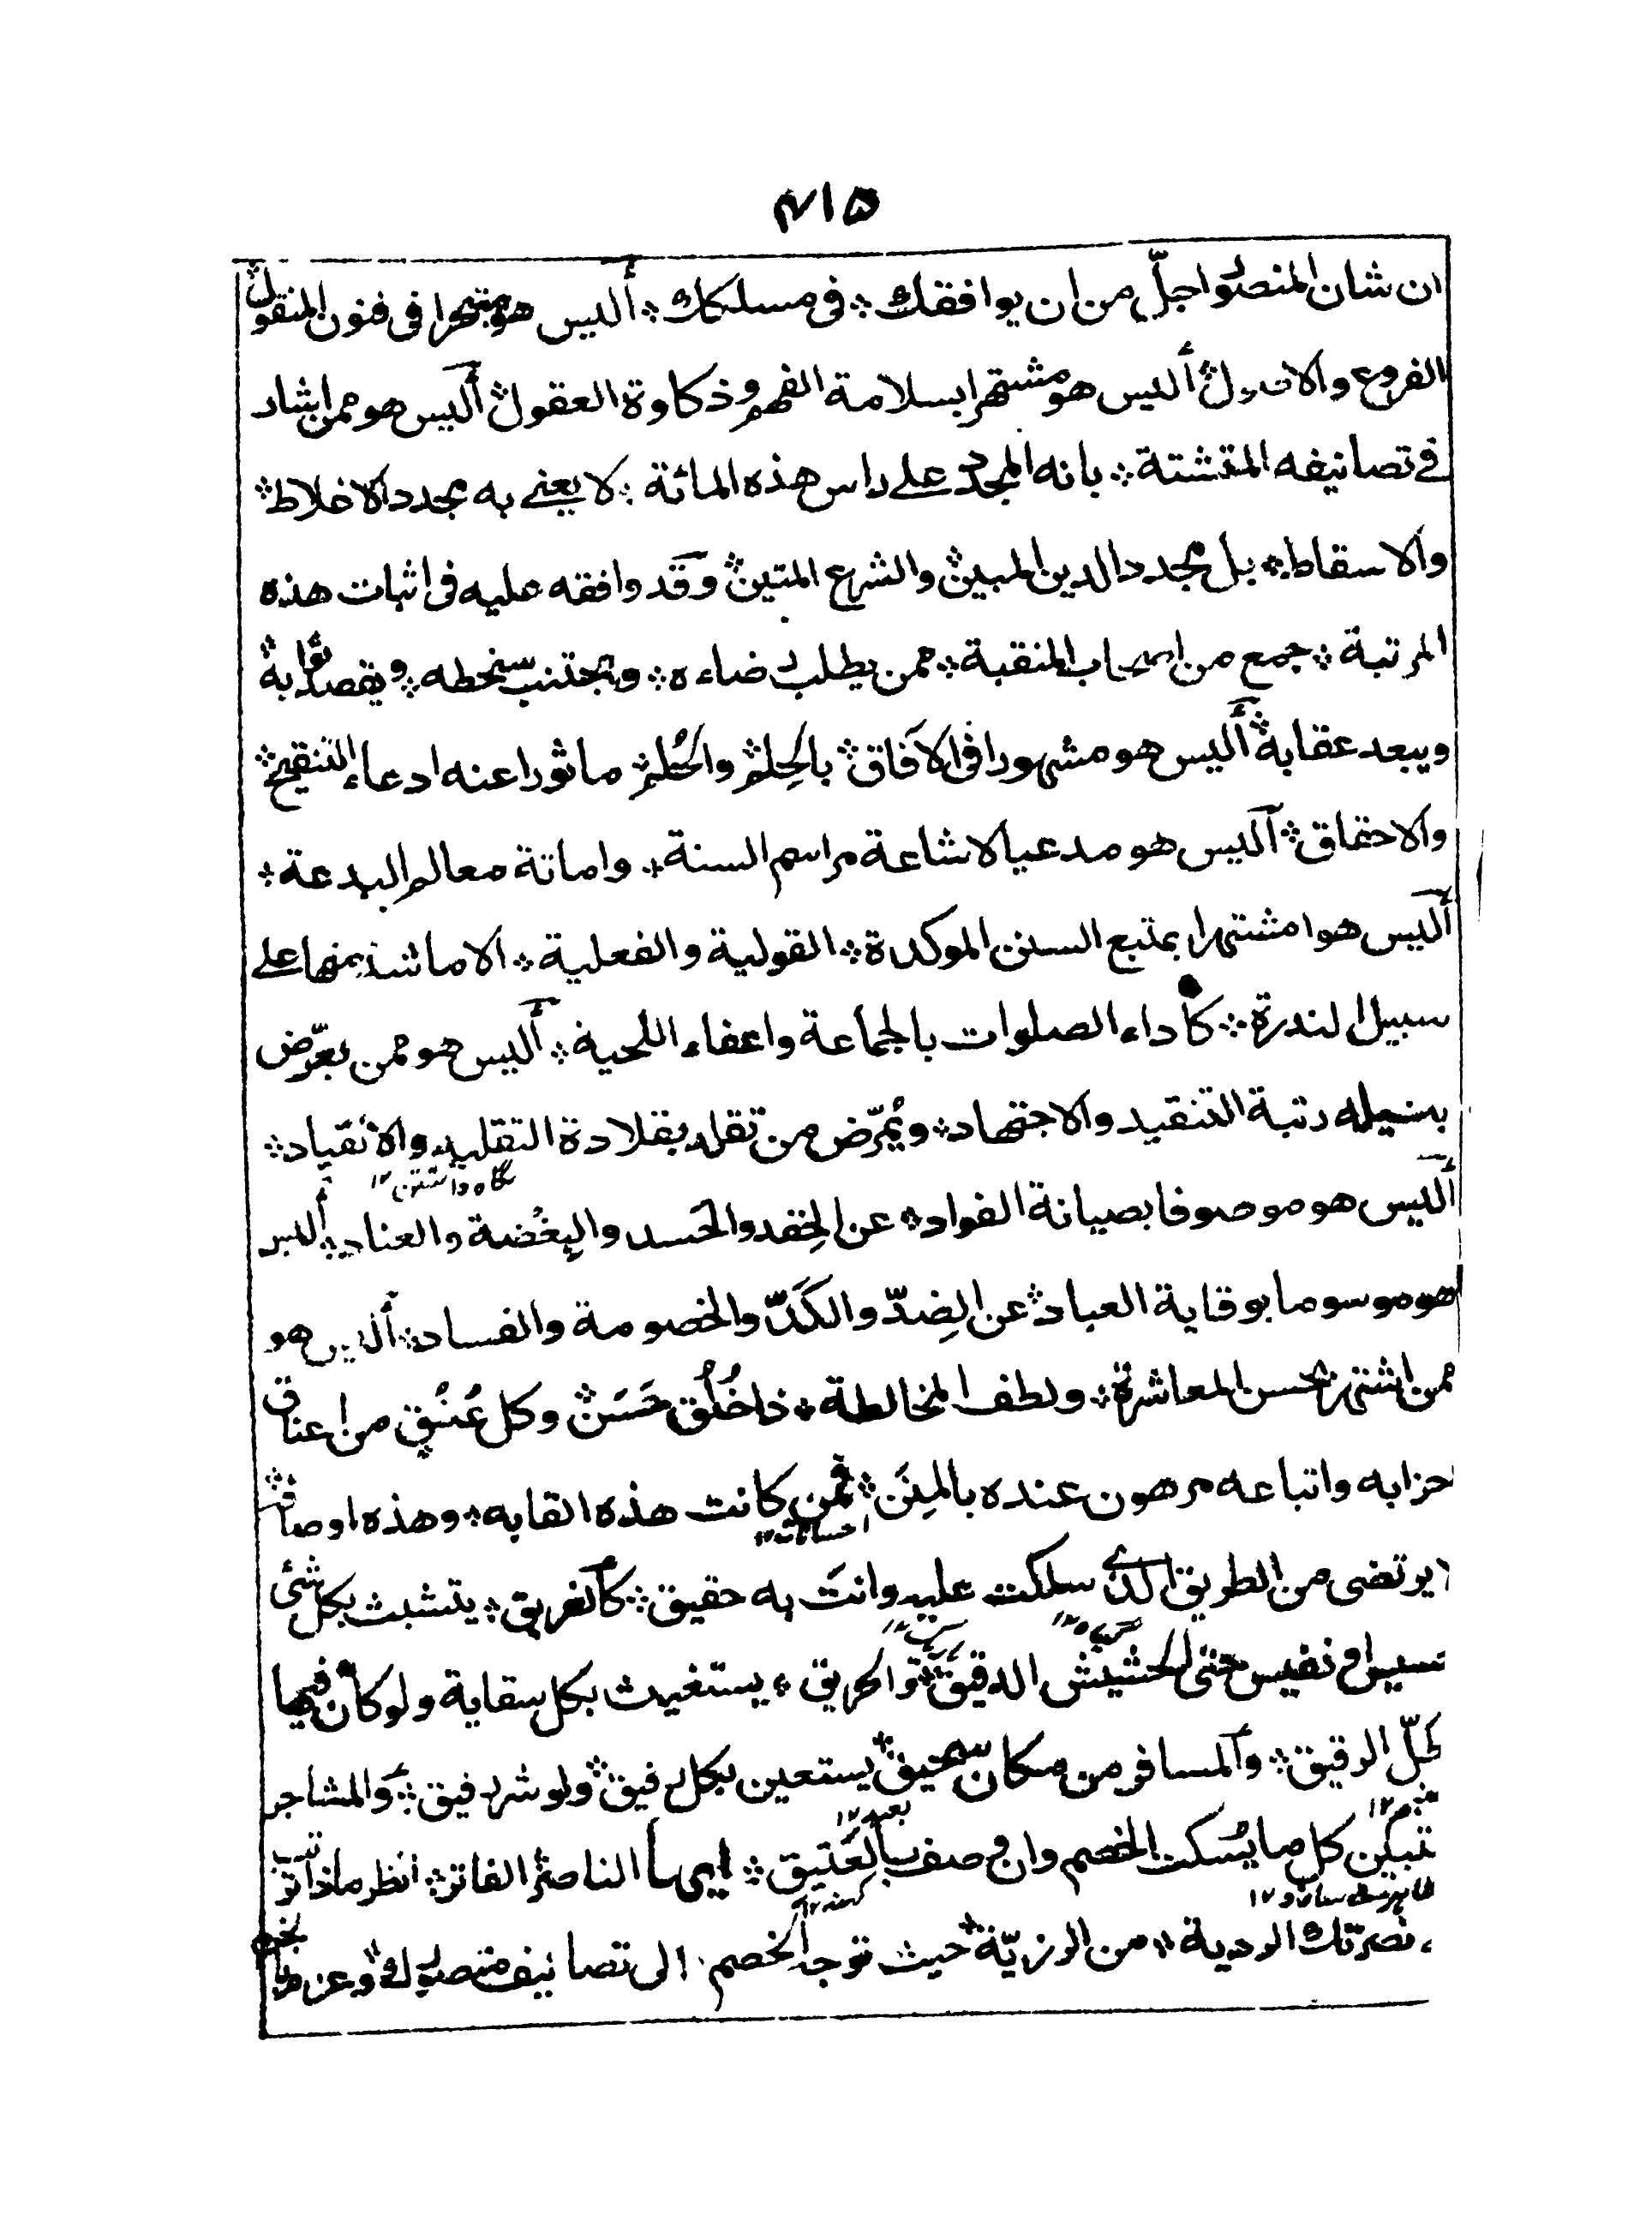 ۴۱۵
ان شان المنصور اجلّ من ان يوافقك ؞ فى مسلكك ؞ أليس هو متبحرا فى فنون المنقول ؞
الفروع والاصول ؞ أليس هو مشتهرا بسلامة الفهم وذكاوة العقول ؞ أليس هو ممن اشار
فى تصانيفه المتشتتة ؞ بانه المجدد على راس هذه المائة ؞ لا يعنى به مجدد الاخلاط ؞
والاسقاط ؞ بل مجدد الدين المبين ؞ والشرع المتين ؞ وقد وافقه عليه فى اثبات هذه
المرتبة ؞ جمع من اصحاب المنقبة ؞ ممن يطلب رضاءه ؞ ويجتنب سخطه ؞ ويقصد ثوابه ؞
ويبعد عقابه ؞ أليس هو مشهورا فى الآفاق ؞ بالحِلم ؞ والحُلم ؞ ماثورا عنه ادعاء التنقيح ؞
والاحقاق ؞ أليس هو مدعيا لاشاعة مراسم السنة ؞ واماتة معالم البدعة ؞
أليس هو مشتهرا بمتبع السنن الموكدة ؞ القولية والفعلية ؞ الا ما شذ منها على
سبيل الندرة ؞ كأداء الصلوات بالجماعة واعفاء اللحية ؞ أليس هو ممن يعرّض
بنيله رتبة التنقيد والاجتهاد ؞ ويُمرّض من تقلد بقلادة التقليد والانقياد ؞
نگاه داشتن ۱۲
أليس هو موصوفا بصيانة الفواد ؞ عن الحِقد والحَسد والبِغْضة والعناد ؞ أليس
هو موسوما بوقاية العباد ؞ عن الضِدّ والكَدّ والخصومة والفساد ؞ أليس هو
ممن اشتهر بحسن المعاشرة ؞ ولطف المخالطة ؞ ذا خُلُق حَسَن ؞ وكل عُنُق من اعناق
احزابه واتباعه مرهون عنده بالمِنَن ؞ فمن كانت هذه القابه ؞ وهذه اوصافه ؞
احسانات ۱۲
لا يرتضى من الطريق الذى سلكت عليه وانتَ به حقيق ؞ كالغريق ؞ يتشبث بكل شئ
گیاه ۱۲
خسيس او نفيس حتى الحشيش الدقيق ؞ والحريق ؞ يستغيث بكل سقاية ولو كان فيها
الخلّ الرقيق ؞ والمسافر من مكان سحيق ؞ يستعين بكل رفيق ؞ ولو شر رفيق ؞ والمشاجر
بعيد ۱۲
كل ما يُسكت الخصم وان وصف بالعَتيق ؞ ايها الناصر الفاتر ؞ انظر ماذا
كهنه ۱۲
نصرتك الردية ؞ من الرزيّة ؞ حيث توجه الخصم الى تصانيف منصورك ؞